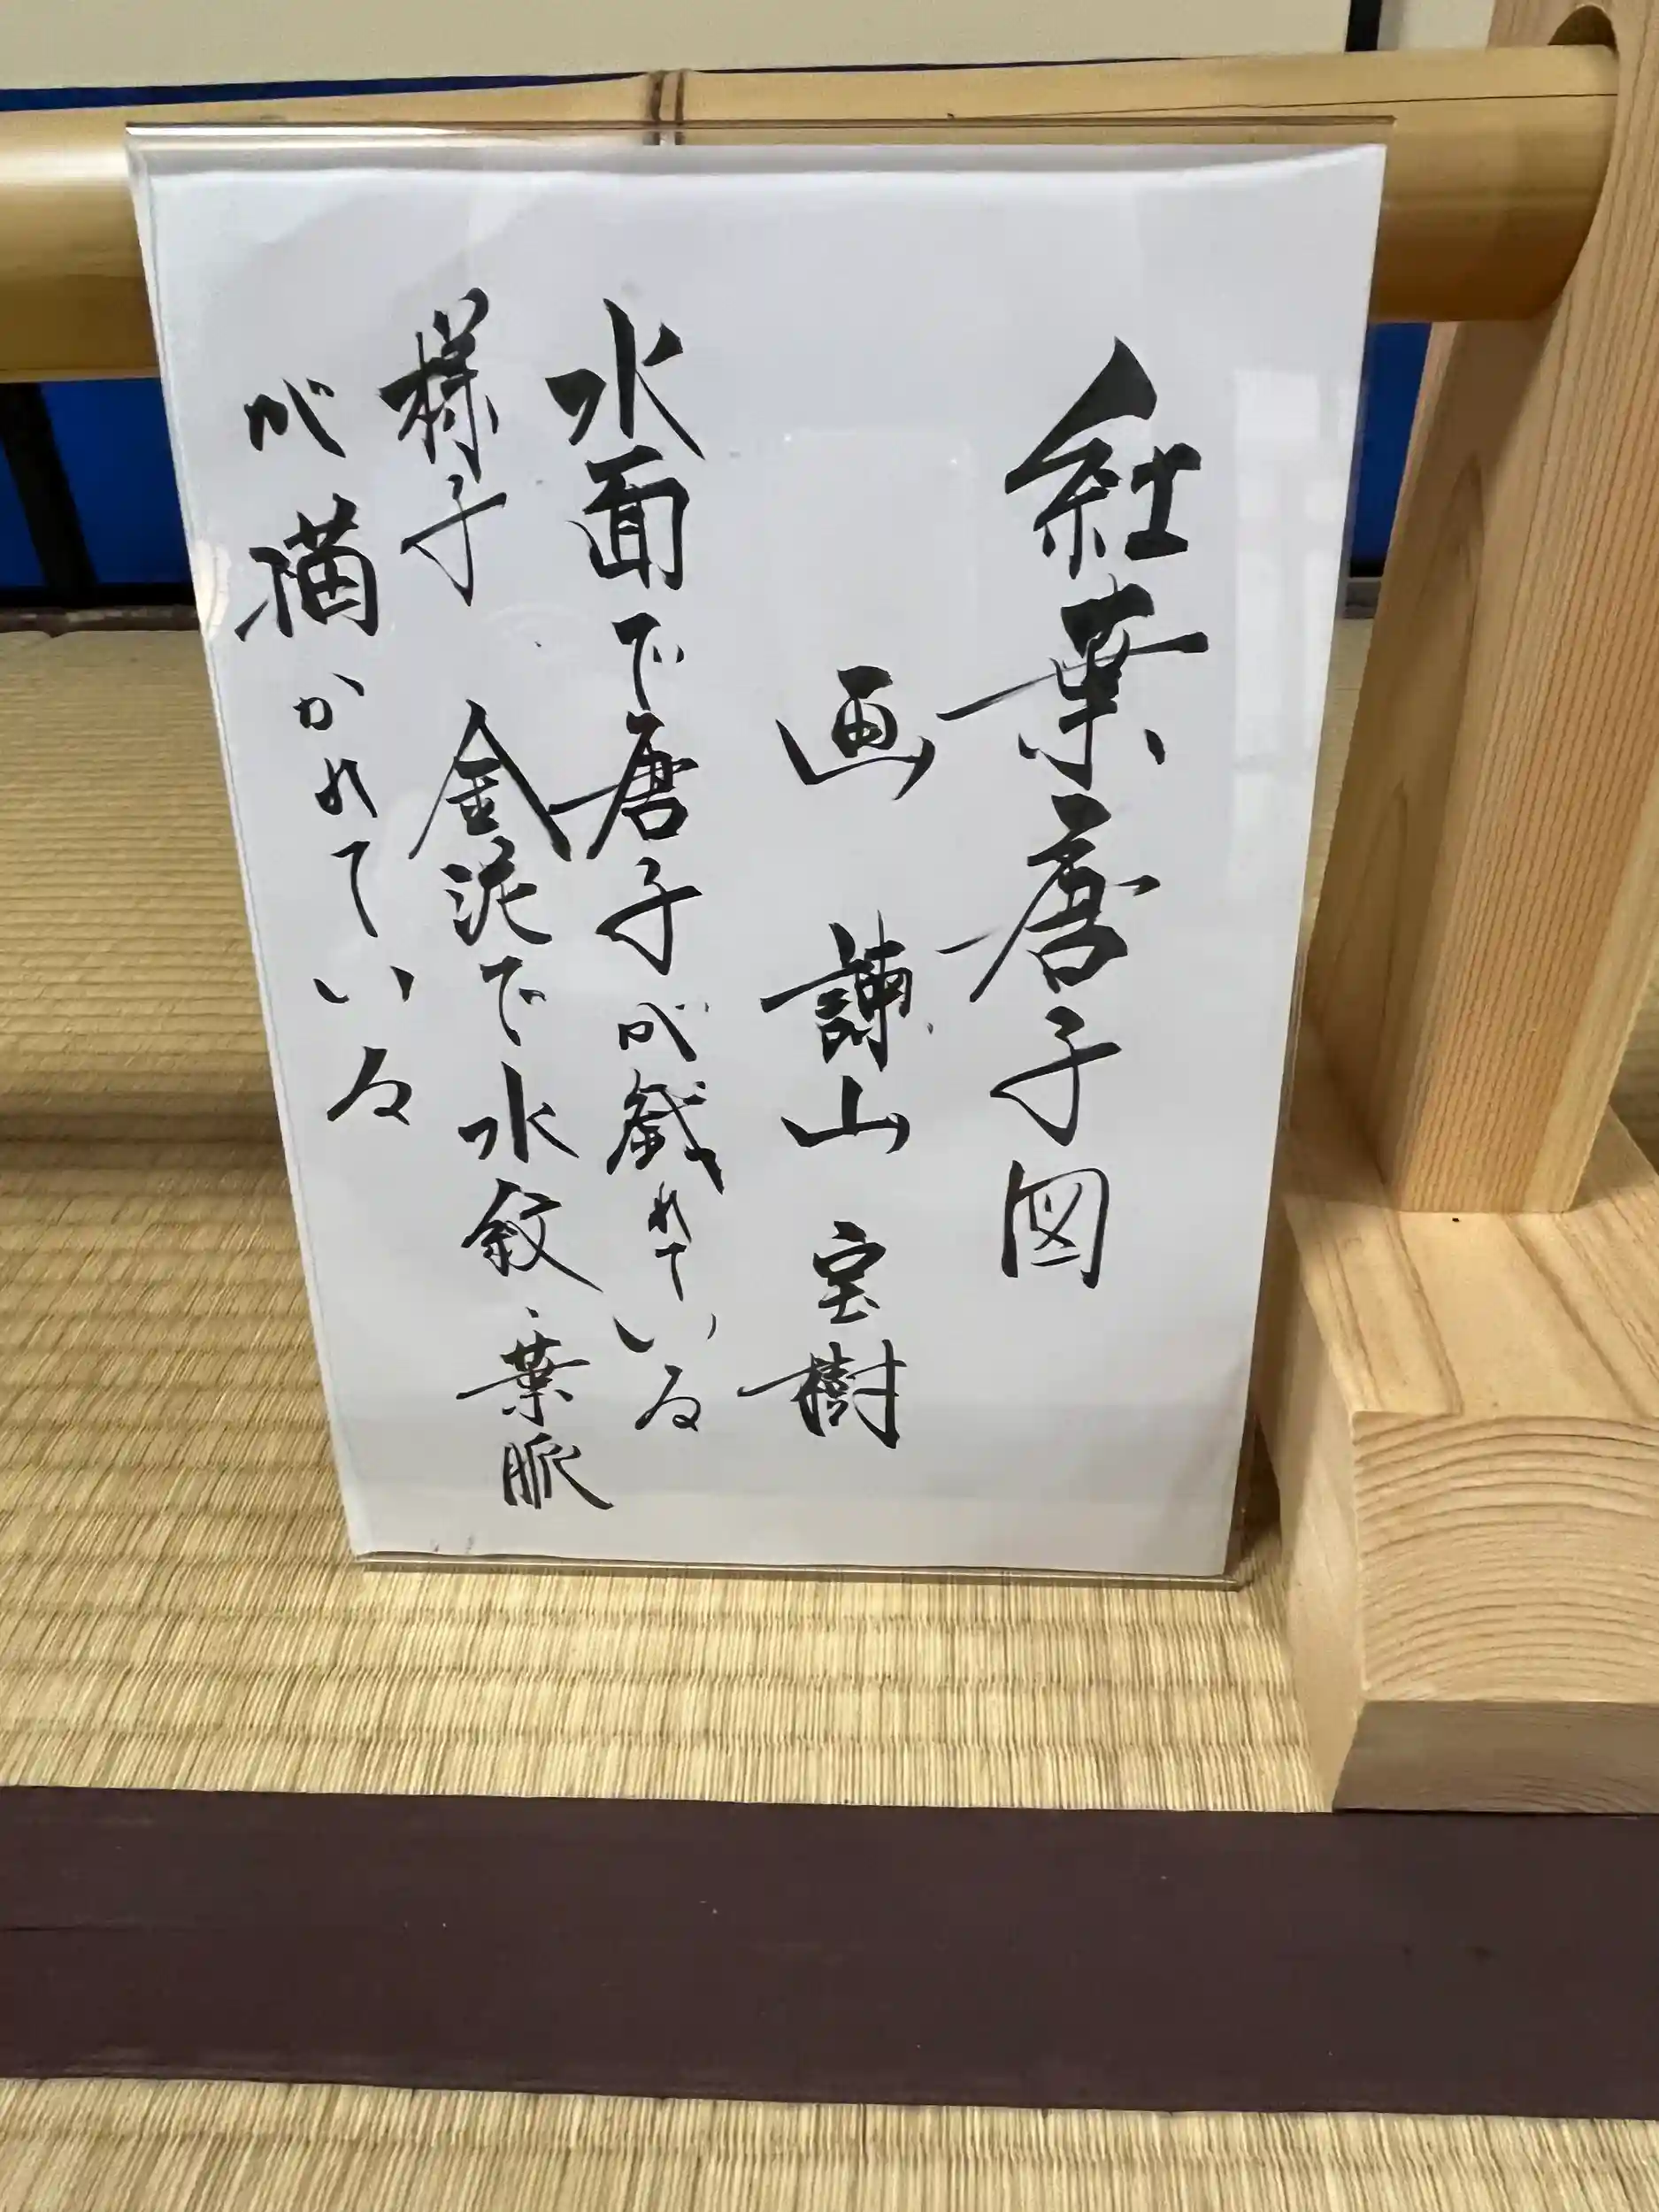 紅葉唐子図
画 諌山宝樹
水面で唐子が戯れている
様子 金泥で水紋・葉脈
が描かれている